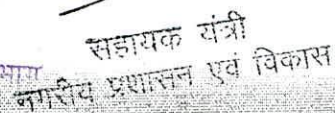 सहायक यंत्री
भाग
नगरीय प्रशासन एवं विकास